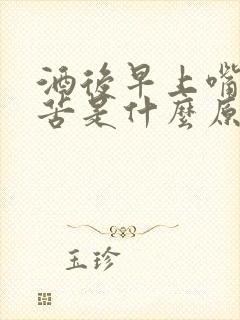 酒後早上嘴
苦是什麼原
玉珍